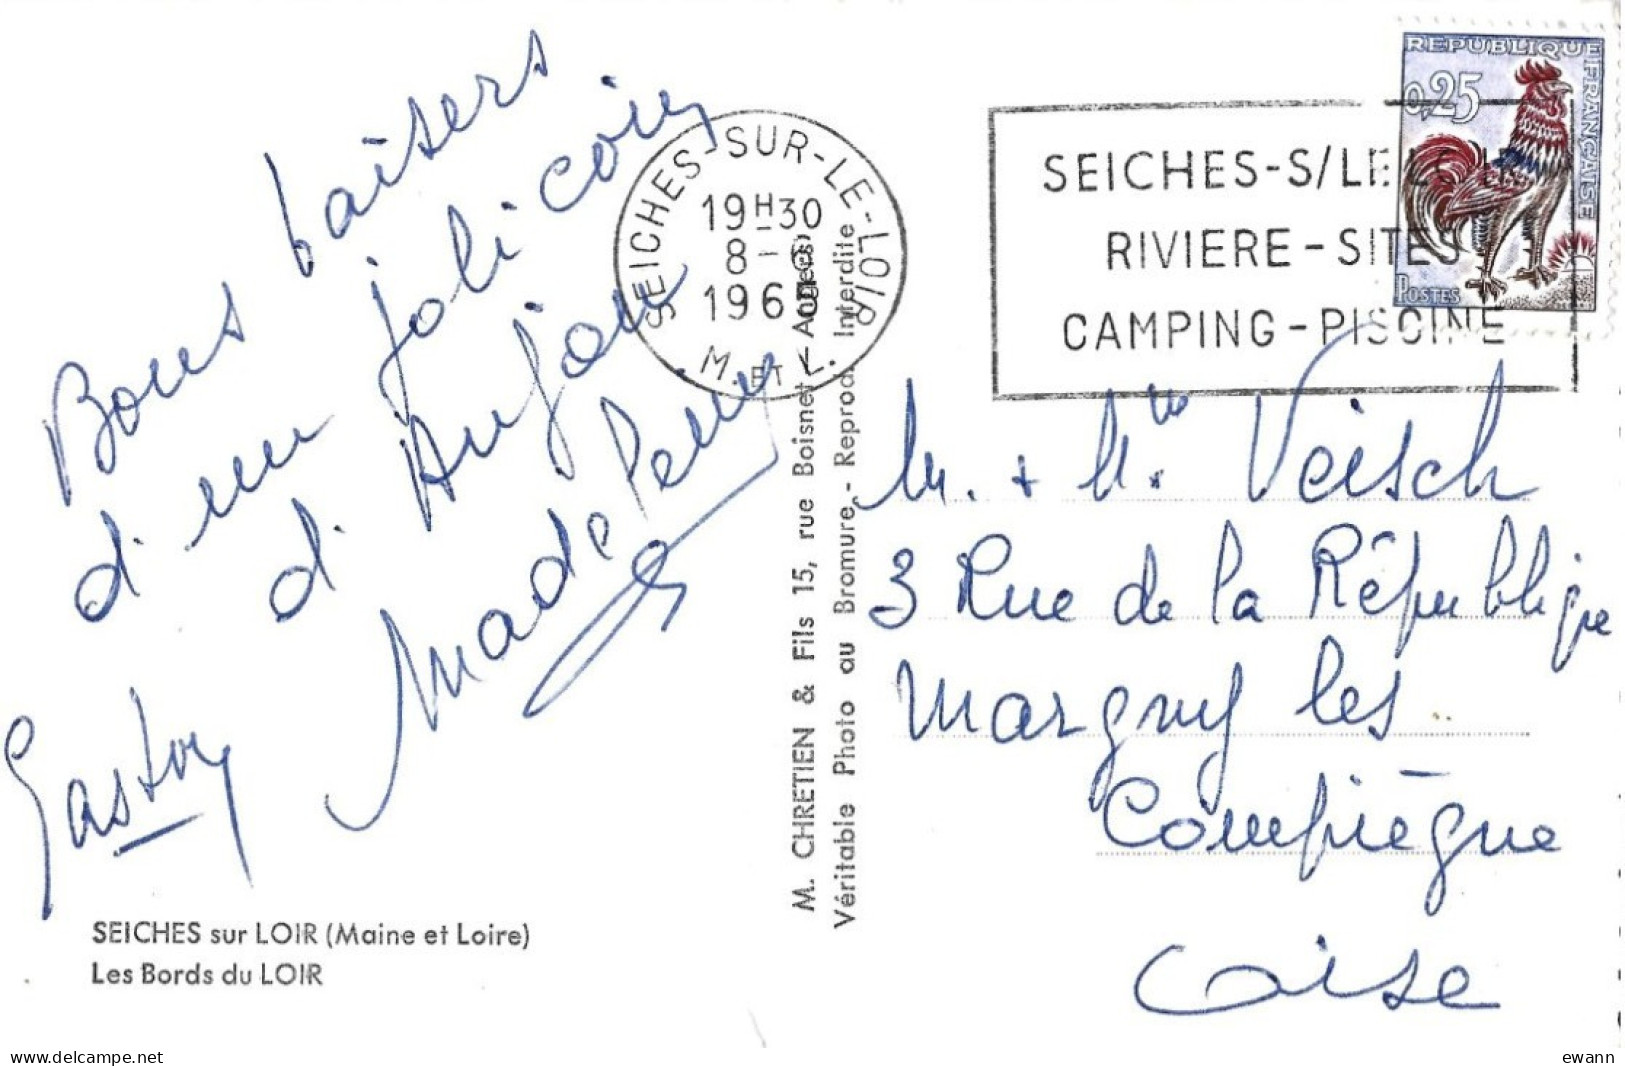 Bons baisers
d'un joli coin
d'Anjou
Madeleine
Gaston
SEICHES sur LOIR (Maine et Loire)
Les Bords du LOIR
M. CHRETIEN & Fils 15, rue Boisnet - Angers
Véritable Photo au Bromure - Reprod. Interdite
SEICHES-SUR-LE-LOIR
19H30
8-
196
M. ET L.
SEICHES-S/LE LOIR
RIVIERE-SITES
CAMPING-PISCINE
REPUBLIQUE FRANÇAISE
0,25
POSTES
M. + Mme Veisch
3 Rue de la République
Margny les
Compiègne
Oise
delcampe.net
ewann